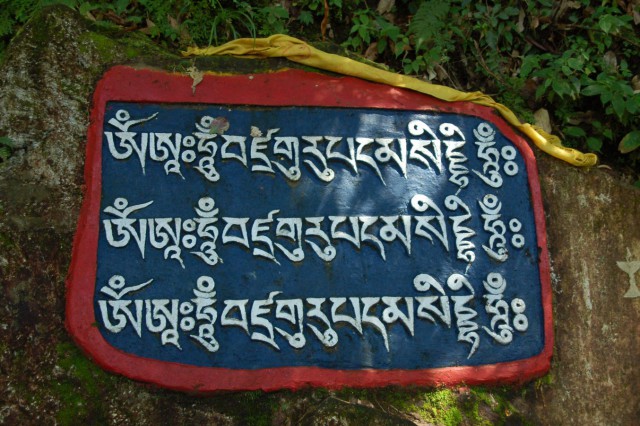 ཨོཾཨཱཿཧཱུྃབཛྲགུརུཔདམསིདྡྷིཧཱུྃ༔
ཨོཾཨཱཿཧཱུྃབཛྲགུརུཔདམསིདྡྷིཧཱུྃ༔
ཨོཾཨཱཿཧཱུྃབཛྲགུརུཔདམསིདྡྷིཧཱུྃ༔